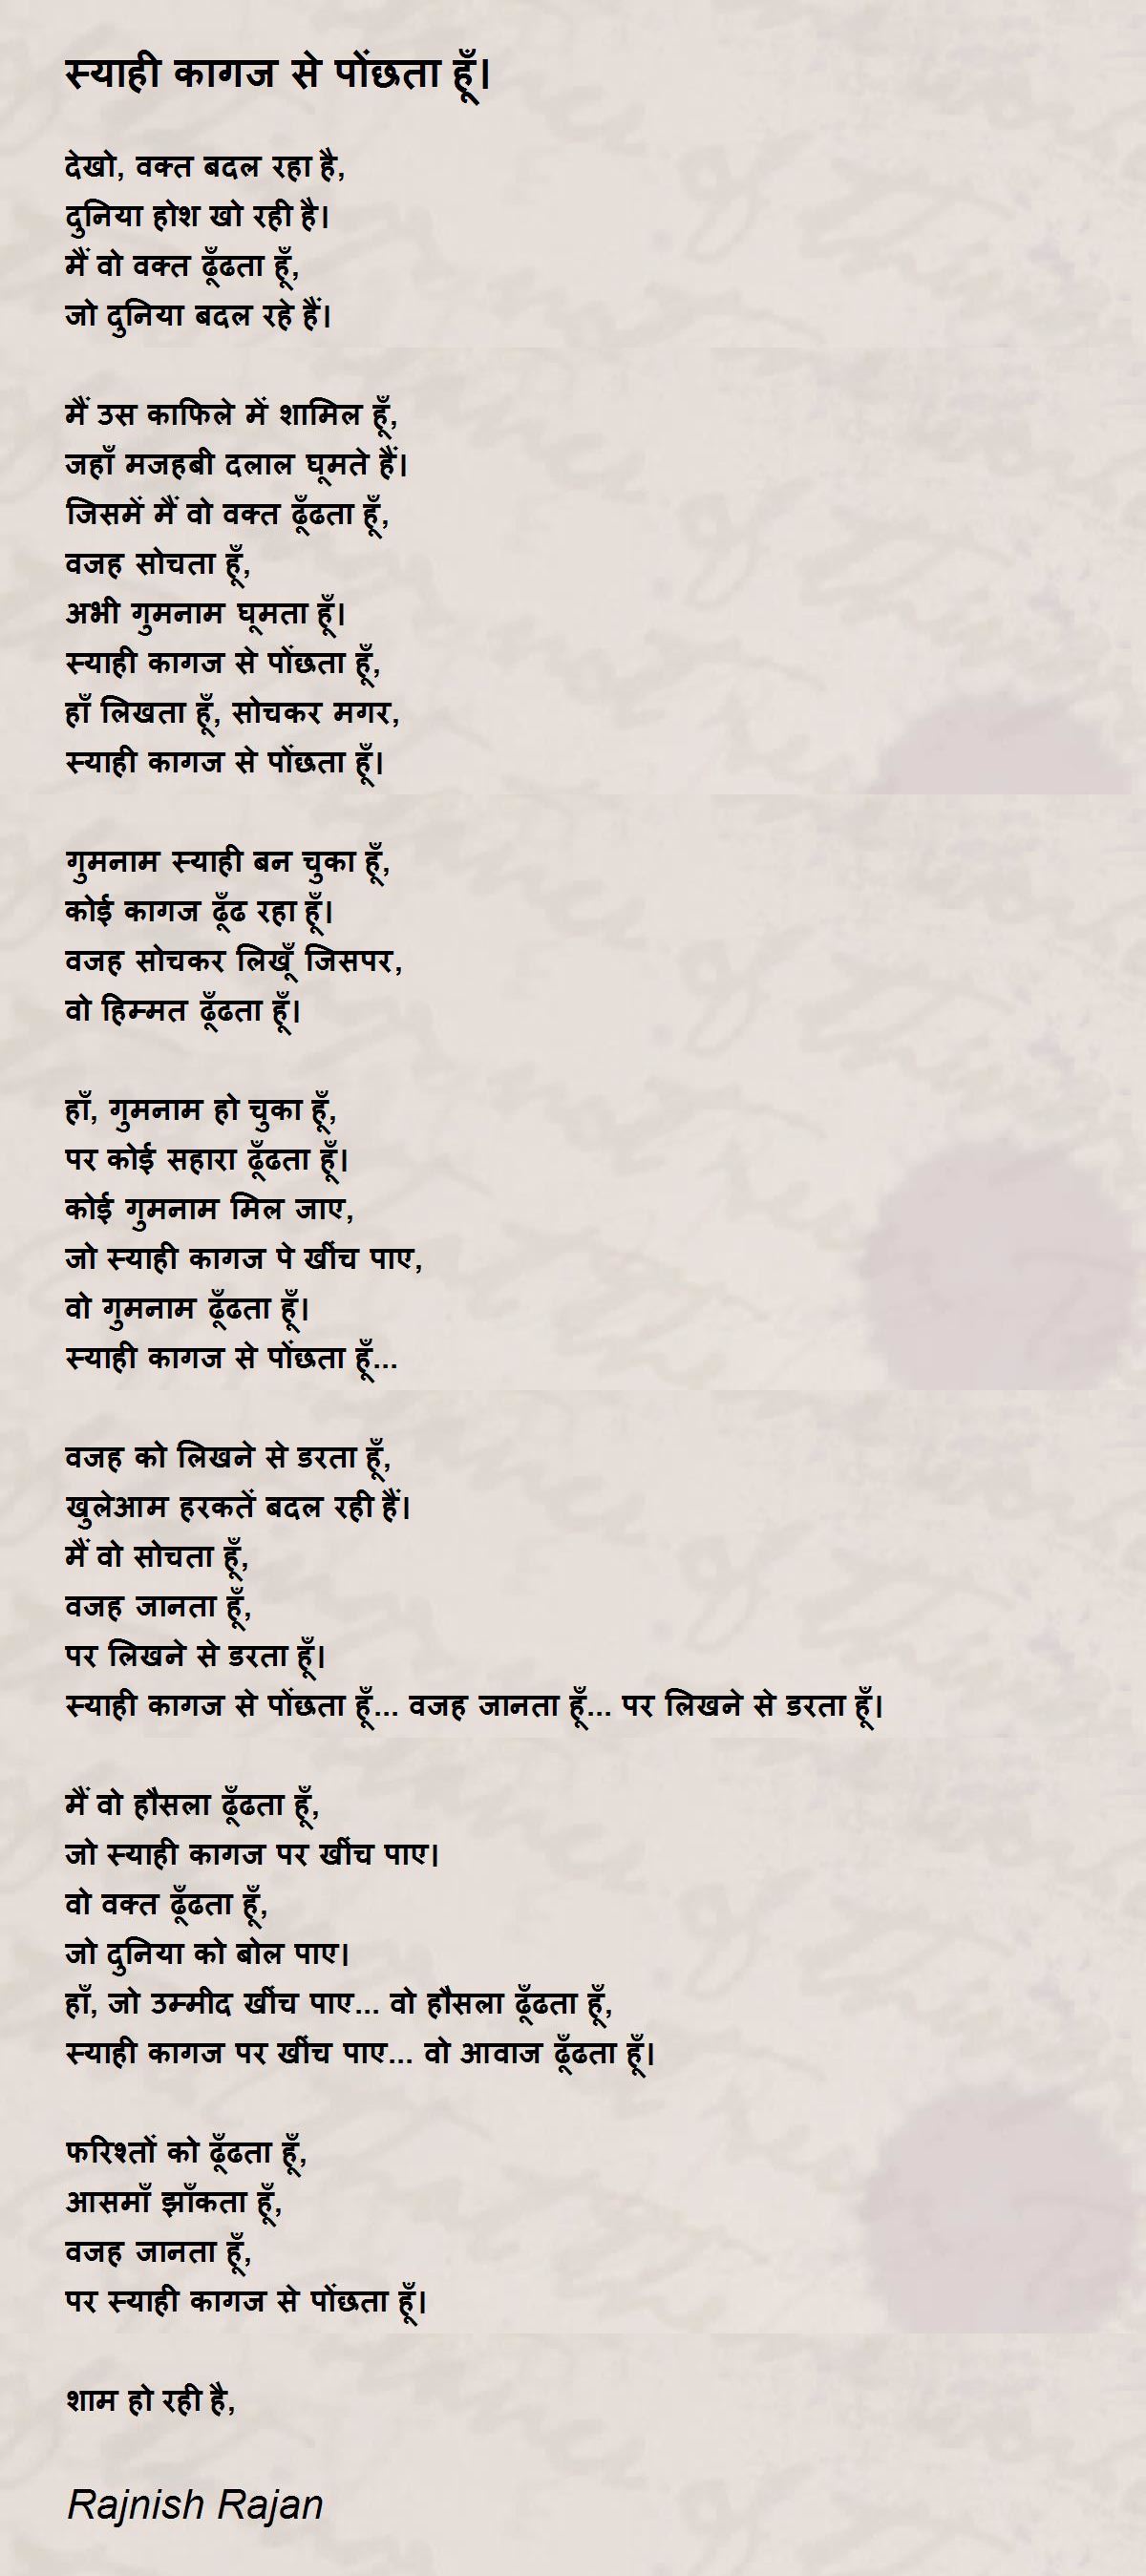 स्याही कागज से पोंछता हूँ।
देखो, वक्त बदल रहा है,
दुनिया होश खो रही है।
मैं वो वक्त ढूँढता हूँ,
जो दुनिया बदल रहे हैं।
मैं उस काफिले में शामिल हूँ,
जहाँ मजहबी दलाल घूमते हैं।
जिसमें मैं वो वक्त ढूँढता हूँ,
वजह सोचता हूँ,
अभी गुमनाम घूमता हूँ।
स्याही कागज से पोंछता हूँ,
हाँ लिखता हूँ, सोचकर मगर,
स्याही कागज से पोंछता हूँ।
गुमनाम स्याही बन चुका हूँ,
कोई कागज ढूँढ रहा हूँ।
वजह सोचकर लिखूँ जिसपर,
वो हिम्मत ढूँढता हूँ।
हाँ, गुमनाम हो चुका हूँ,
पर कोई सहारा ढूँढता हूँ।
कोई गुमनाम मिल जाए,
जो स्याही कागज पे खींच पाए,
वो गुमनाम ढूँढता हूँ।
स्याही कागज से पोंछता हूँ...
वजह को लिखने से डरता हूँ,
खुलेआम हरकतें बदल रही हैं।
मैं वो सोचता हूँ,
वजह जानता हूँ,
पर लिखने से डरता हूँ।
स्याही कागज से पोंछता हूँ... वजह जानता हूँ... पर लिखने से डरता हूँ।
मैं वो हौसला ढूँढता हूँ,
जो स्याही कागज पर खींच पाए।
वो वक्त ढूँढता हूँ,
जो दुनिया को बोल पाए।
हाँ, जो उम्मीद खींच पाए... वो हौसला ढूँढता हूँ,
स्याही कागज पर खींच पाए... वो आवाज ढूँढता हूँ।
फरिश्तों को ढूँढता हूँ,
आसमाँ झाँकता हूँ,
वजह जानता हूँ,
पर स्याही कागज से पोंछता हूँ।
शाम हो रही है,
Rajnish Rajan